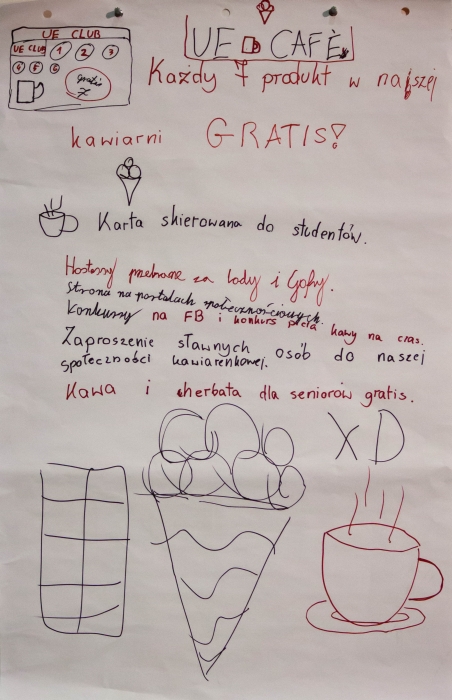 UE CLUB
UE CLUB 1 2 3
4 5 6 gratis 7
UE CAFÈ
Każdy 7 produkt w naszej
kawiarni GRATIS!
Karta skierowana do studentów.
Hostessy przebrane za lody i Gofry.
Strona na portalach społecznościowych.
Konkursy na FB i konkurs picia kawy na czas.
Zaproszenie sławnych osób do naszej
społeczności kawiarenkowej.
Kawa i herbata dla seniorów gratis.
XD